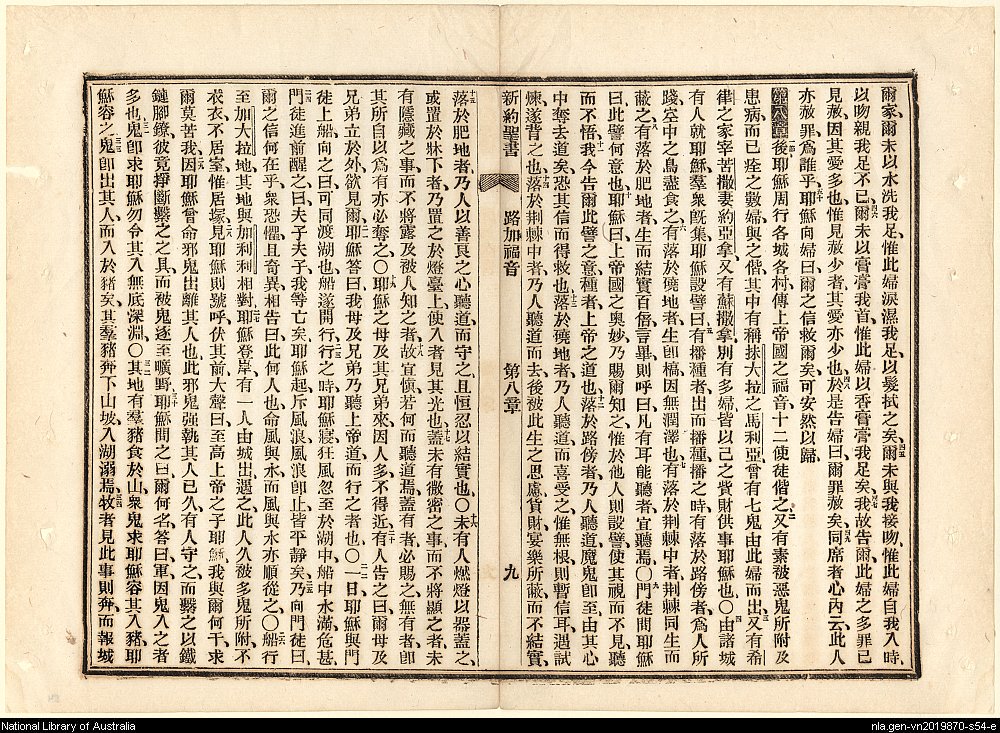 爾家爾未以水洗我足惟此婦淚濕我足以髮拭之矣爾未與我接吻惟此婦自我入時
以吻親我足不已爾未以膏膏我首惟此婦以香膏膏我足矣我故告爾此婦之多罪已
見赦因其愛多也惟見赦少者其愛亦少也於是告婦曰爾罪赦矣同席者心內云此人
亦赦罪爲誰乎耶穌向婦曰爾之信救爾矣可安然以歸
第八章後耶穌周行各城各村傳上帝國之福音十二使徒偕之又有素被惡鬼所附及
患病而已痊之數婦與之偕其中有稱抹大拉之馬利亞曾有七鬼由此婦而出又有希
律之家宰苦撒妻約亞拿又有蘇撒拿別有多婦皆以己之貲財供事耶穌也〇由諸城
有人就耶穌羣衆既集耶穌設譬曰有播種者出而播種播之時有落於路傍者爲人所
踐空中之鳥盡食之有落於磽地者生卽槁因無潤澤也有落於荆棘中者荆棘同生而
蔽之有落於肥地者生而結實百倍言畢則呼曰凡有耳能聽者宜聽焉〇門徒問耶穌
曰此譬何意也耶穌曰上帝國之奥妙乃賜爾知之惟於他人則設譬使其視而不見聽
而不悟我今告爾此譬之意種者上帝之道也落於路傍者乃人聽道魔鬼卽至由其心
中奪去道矣恐其信而得救也落於磽地者乃人聽道而喜受之惟無根則暫信耳遇試
煉遂背之也落於荆棘中者乃人聽道而去後被此生之思慮貨財宴樂所蔽而不結實
新約聖書 路加福音 第八章 九
落於肥地者乃人以善良之心聽道而守之且恒忍以結實也〇未有人燃燈以器蓋之
或置於牀下者乃置之於燈臺上使入者見其光也蓋未有微密之事而不將顯之者未
有隱藏之事而不將露及被人知之者故宜愼若何而聽道焉蓋有者必賜之無有者卽
其所自以爲有亦必奪之〇耶穌之母及其兄弟來因人多不得近有人告之曰爾母及
兄弟立於外欲見爾耶穌答曰我母及兄弟乃聽上帝道而行之者也〇一日耶穌與門
徒上船向之曰可同渡湖也船遂開行行之時耶穌寢狂風忽至於湖中船中水滿危甚
門徒進前醒之曰夫子夫子我等亡矣耶穌起斥風浪風浪卽止皆平靜矣乃向門徒曰
爾之信何在乎衆恐懼且奇異相告曰此何人也命風與水而風與水亦順從之〇船行
至加大拉地其地與加利利相對耶穌登岸有一人由城出遇之此人久被多鬼所附不
衣衣不居室惟居塚見耶穌則號呼伏其前大聲曰至高上帝之子耶穌我與爾何干求
爾莫苦我因耶穌曾命邪鬼出離其人也此邪鬼强執其人已久有人守之而繫之以鐵
鏈腳鐐彼竟掙斷繫之之具而被鬼逐至曠野耶穌問之曰爾何名答曰軍因鬼入之者
多也鬼卽求耶穌勿令其入無底深淵〇其地有羣豬食於山衆鬼求耶穌容其入豬耶
穌容之鬼卽出其人而入於豬矣其羣豬奔下山坡入湖溺焉牧者見此事則奔而報城
National Library of Australia
nla.gen-vn2019870-s54-e